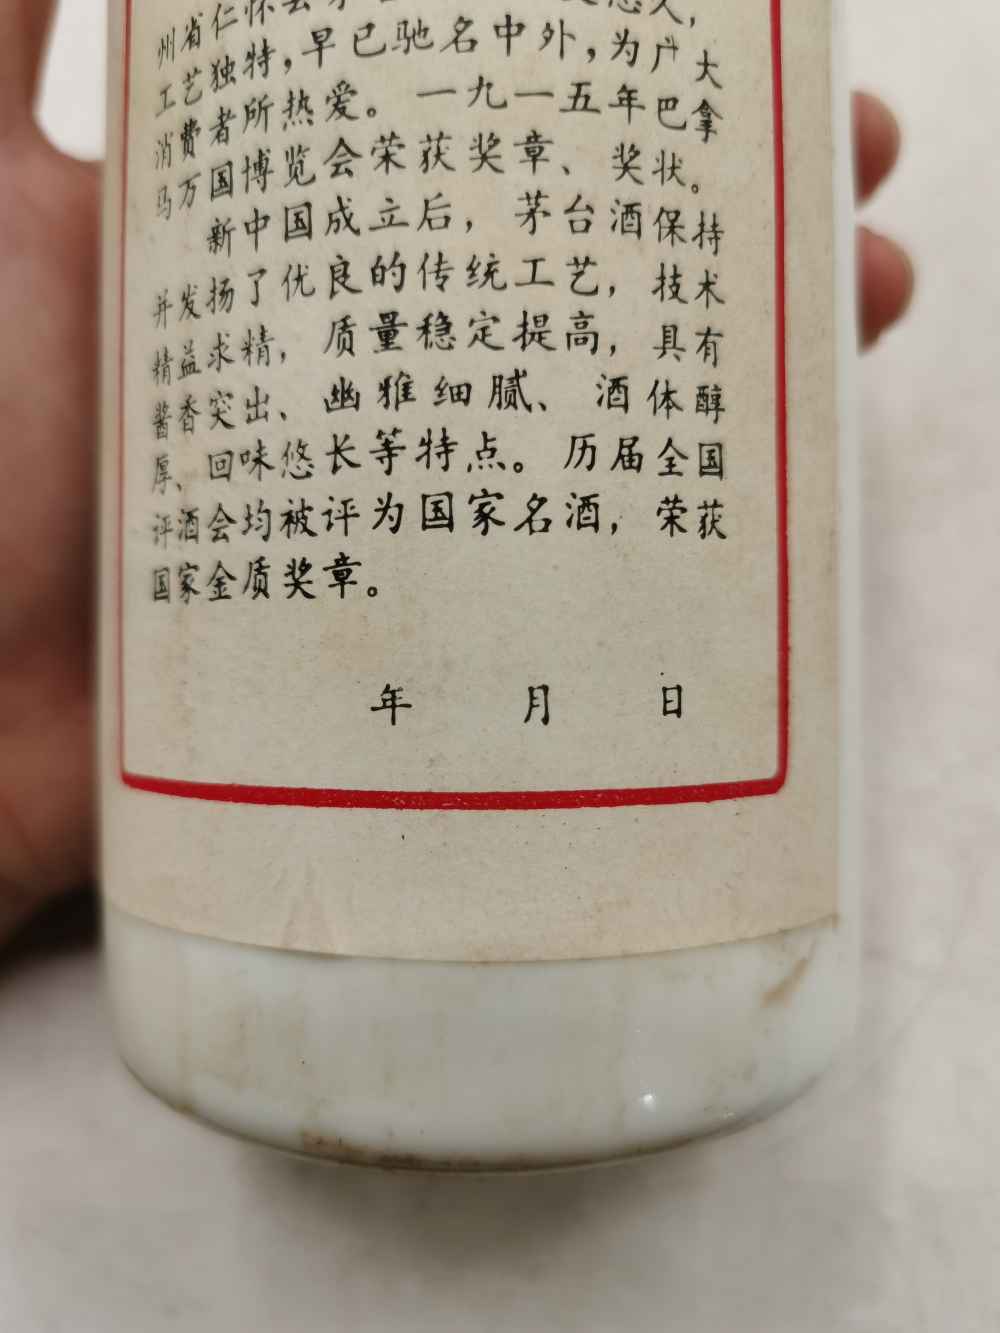 州省仁怀县
工艺独特，早已驰名中外，为广大
消费者所热爱。一九一五年巴拿
马万国博览会荣获奖章、奖状。
新中国成立后，茅台酒保持
并发扬了优良的传统工艺，技术
精益求精，质量稳定提高，具有
酱香突出、幽雅细腻、酒体醇
厚、回味悠长等特点。历届全国
评酒会均被评为国家名酒，荣获
国家金质奖章。
年 月 日